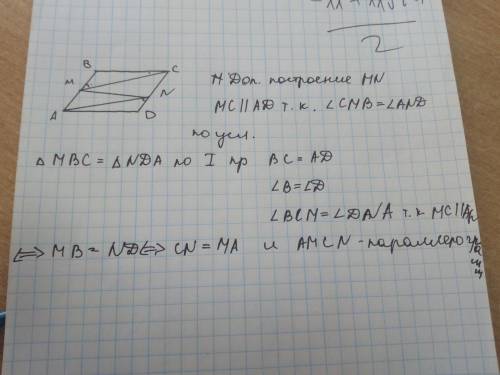 -11+11√
2
B
C
M
N
A
D
Доп. построение MN
MC||AD т.к. ∠CMB=∠AND
по усл.
△MBC=△NDA по I пр
BC=AD
∠B=∠D
∠BCM=∠DNA т.к MC||AN
⟺ MB=ND⟺ CN=MA и AMCN-параллелограмм